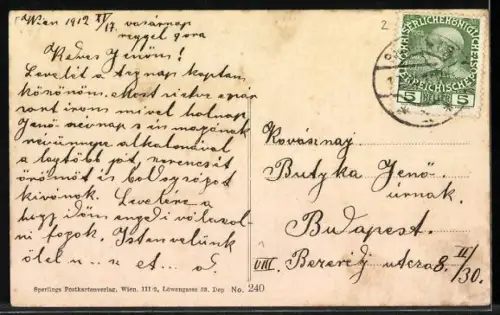 Wien 1912 IV/17. vasárnap
reggel 9 óra
Kedves Jenőm!
Levelét a tegnap kaptam
köszönöm. Most sietve e pár
sort írom mivel holnap
Jenő névnap s én magának
névünnepe alkalmával
a legtöbb jót, szerencsét
örömöt és boldogságot
kívánok. Levelére a
hogy időm engedi válaszol-
ni fogok. Isten velünk
ölel
2
5 5
Kovásznaj
Butyka Jenő
úrnak.
Budapest.
VIII. Bezerédj utcza 8. II/30.
Sperlings Postkartenverlag, Wien. III/2, Löwengasse Dep No. 240